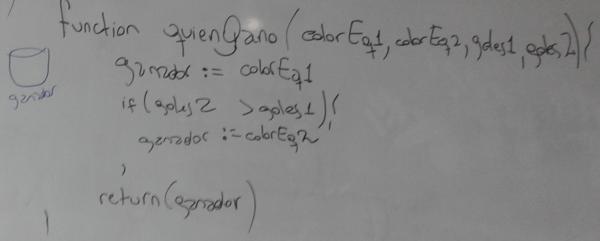 function quienGano(colorEq1, colorEq2, goles1, goles2){
ganador := colorEq1
if(goles2 > goles1){
ganador := colorEq2
}
return(ganador)
}
ganador